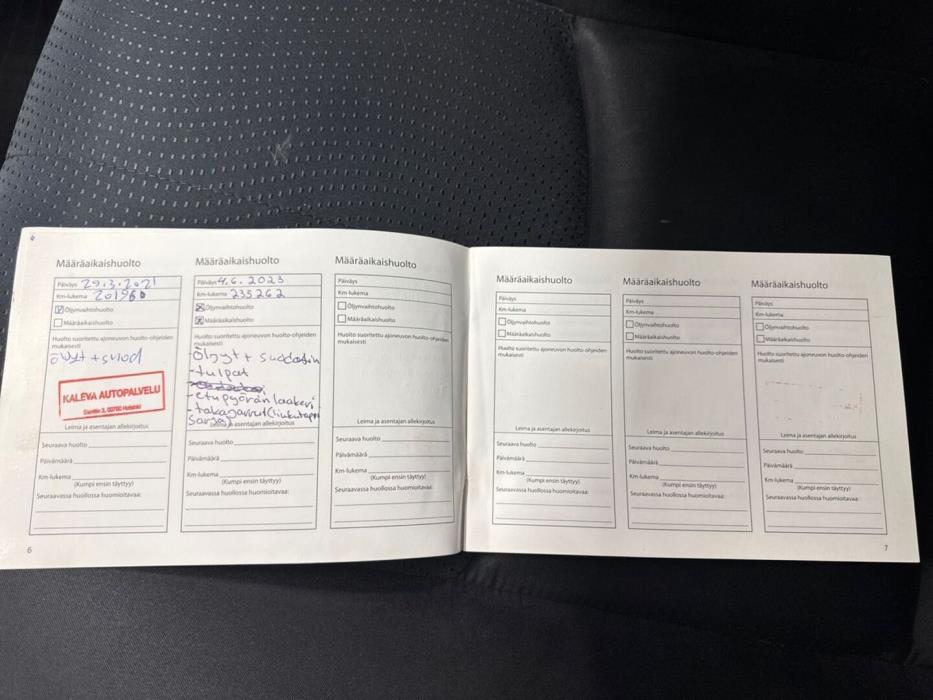 Määräaikaishuolto
Päiväys 29.3.2021
Km-lukema
Öljynvaihtohuolto
Määräaikaishuolto
Huolto suoritettu ajoneuvon huolto-ohjeiden
mukaisesti
KALEVA AUTOPALVELU
Santtio 3, 00760 Helsinki
Leima ja asentajan allekirjoitus
Seuraava huolto
Päivämäärä
Km-lukema
(Kumpi ensin täyttyy)
Seuraavassa huollossa huomioitavaa:
6
Määräaikaishuolto
Päiväys 4.6.2023
Km-lukema 235262
Öljynvaihtohuolto
Määräaikaishuolto
Huolto suoritettu ajoneuvon huolto-ohjeiden
mukaisesti
-Öljyt + suodatin
-tulpat
-etupyörän laakeri
-takajarrut (liukutappi
sarja)
Leima ja asentajan allekirjoitus
Seuraava huolto
Päivämäärä
Km-lukema
(Kumpi ensin täyttyy)
Seuraavassa huollossa huomioitavaa:
Määräaikaishuolto
Päiväys
Km-lukema
Öljynvaihtohuolto
Määräaikaishuolto
Huolto suoritettu ajoneuvon huolto-ohjeiden
mukaisesti
Leima ja asentajan allekirjoitus
Seuraava huolto
Päivämäärä
Km-lukema
(Kumpi ensin täyttyy)
Seuraavassa huollossa huomioitavaa:
Määräaikaishuolto
Päiväys
Km-lukema
Öljynvaihtohuolto
Määräaikaishuolto
Huolto suoritettu ajoneuvon huolto-ohjeiden
mukaisesti
Leima ja asentajan allekirjoitus
Seuraava huolto
Päivämäärä
Km-lukema
(Kumpi ensin täyttyy)
Seuraavassa huollossa huomioitavaa:
Määräaikaishuolto
Päiväys
Km-lukema
Öljynvaihtohuolto
Määräaikaishuolto
Huolto suoritettu ajoneuvon huolto-ohjeiden
mukaisesti
Leima ja asentajan allekirjoitus
Seuraava huolto
Päivämäärä
Km-lukema
(Kumpi ensin täyttyy)
Seuraavassa huollossa huomioitavaa:
Määräaikaishuolto
Päiväys
Km-lukema
Öljynvaihtohuolto
Määräaikaishuolto
Huolto suoritettu ajoneuvon huolto-ohjeiden
mukaisesti
Leima ja asentajan allekirjoitus
Seuraava huolto
Päivämäärä
Km-lukema
(Kumpi ensin täyttyy)
Seuraavassa huollossa huomioitavaa:
7